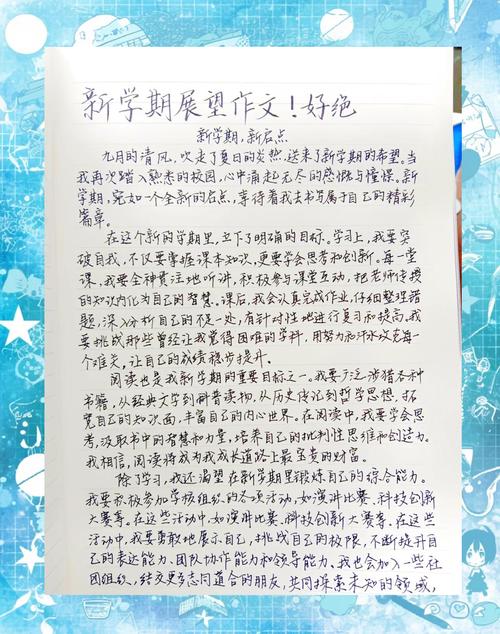 新学期展望作文！好绝
新学期，新启点
九月的清风，吹走了夏日的炎热，送来了新学期的希望。当
我再次踏入熟悉的校园，心中涌起无尽的感慨与憧憬。新
学期，宛如一个全新的启点，等待着我去书写属于自己的精彩
篇章。
在这个新的学期里，立下了明确的目标。学习上，我要突
破自我，不仅要掌握课本知识，更要学会思考和创新。每一堂
课，我要全神贯注地听讲，积极参与课堂互动，把老师传授
的知识内化为自己的智慧。课后，我会认真完成作业，仔细整理错
题，深入分析自己的不足处，有针对性地进行复习和提高。我
要挑战那些曾经让我觉得困难的学科，用努力和汗水攻克每一
个难关，让自己的成绩稳步提升。
阅读也是我新学期的重要目标之一。我要广泛涉猎各种
书籍，从经典文学到科普读物，从历史传记到哲学思想，拓
宽自己的知识面，丰富自己的内心世界。在阅读中，我要学会思
考，汲取书中的智慧和力量，培养自己的批判性思维和创造力。
我相信，阅读将成为我成长道路上最宝贵的财富。
除了学习，我还渴望在新学期里锻炼自己的综合能力。
我要积极参加学校组织的各项活动，如演讲比赛、科技创新
大赛等。在这些活动中，如演讲比赛、科技创新大赛等。在这些
活动中，我要勇敢地展示自己，挑战自己的极限，不断提升自
己的表达能力、团队协作能力和领导能力。我也会加入一些社
团组织，结交更多志同道合的朋友，共同探索未知的领域，